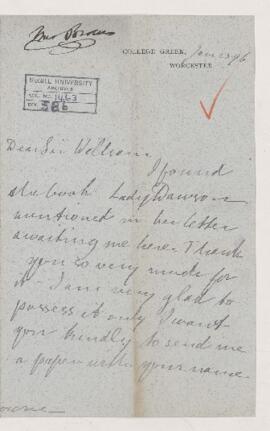 COLLEGE GREEN,
WORCESTER.
McGILL UNIVERSITY
ARCHIVES
ACC. NO. 1463
REF. 38b
Dear Sir William,
I found
the book Lady Dawson
mentioned in her letter
awaiting me here. Thank
you so very much for
it - I am very glad to
possess it only I want
you kindly to send me
a paper with your name